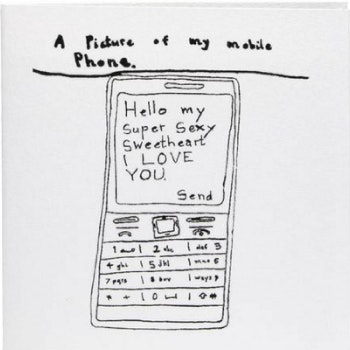 A Picture of my mobile
Phone.
Hello my
Super Sexy
Sweetheart
I LOVE
YOU.
Send
1 2 abc def 3
4 ghi 5 jkl mno 6
7 pqrs 8 tuv wxyz 9
* + 0 #